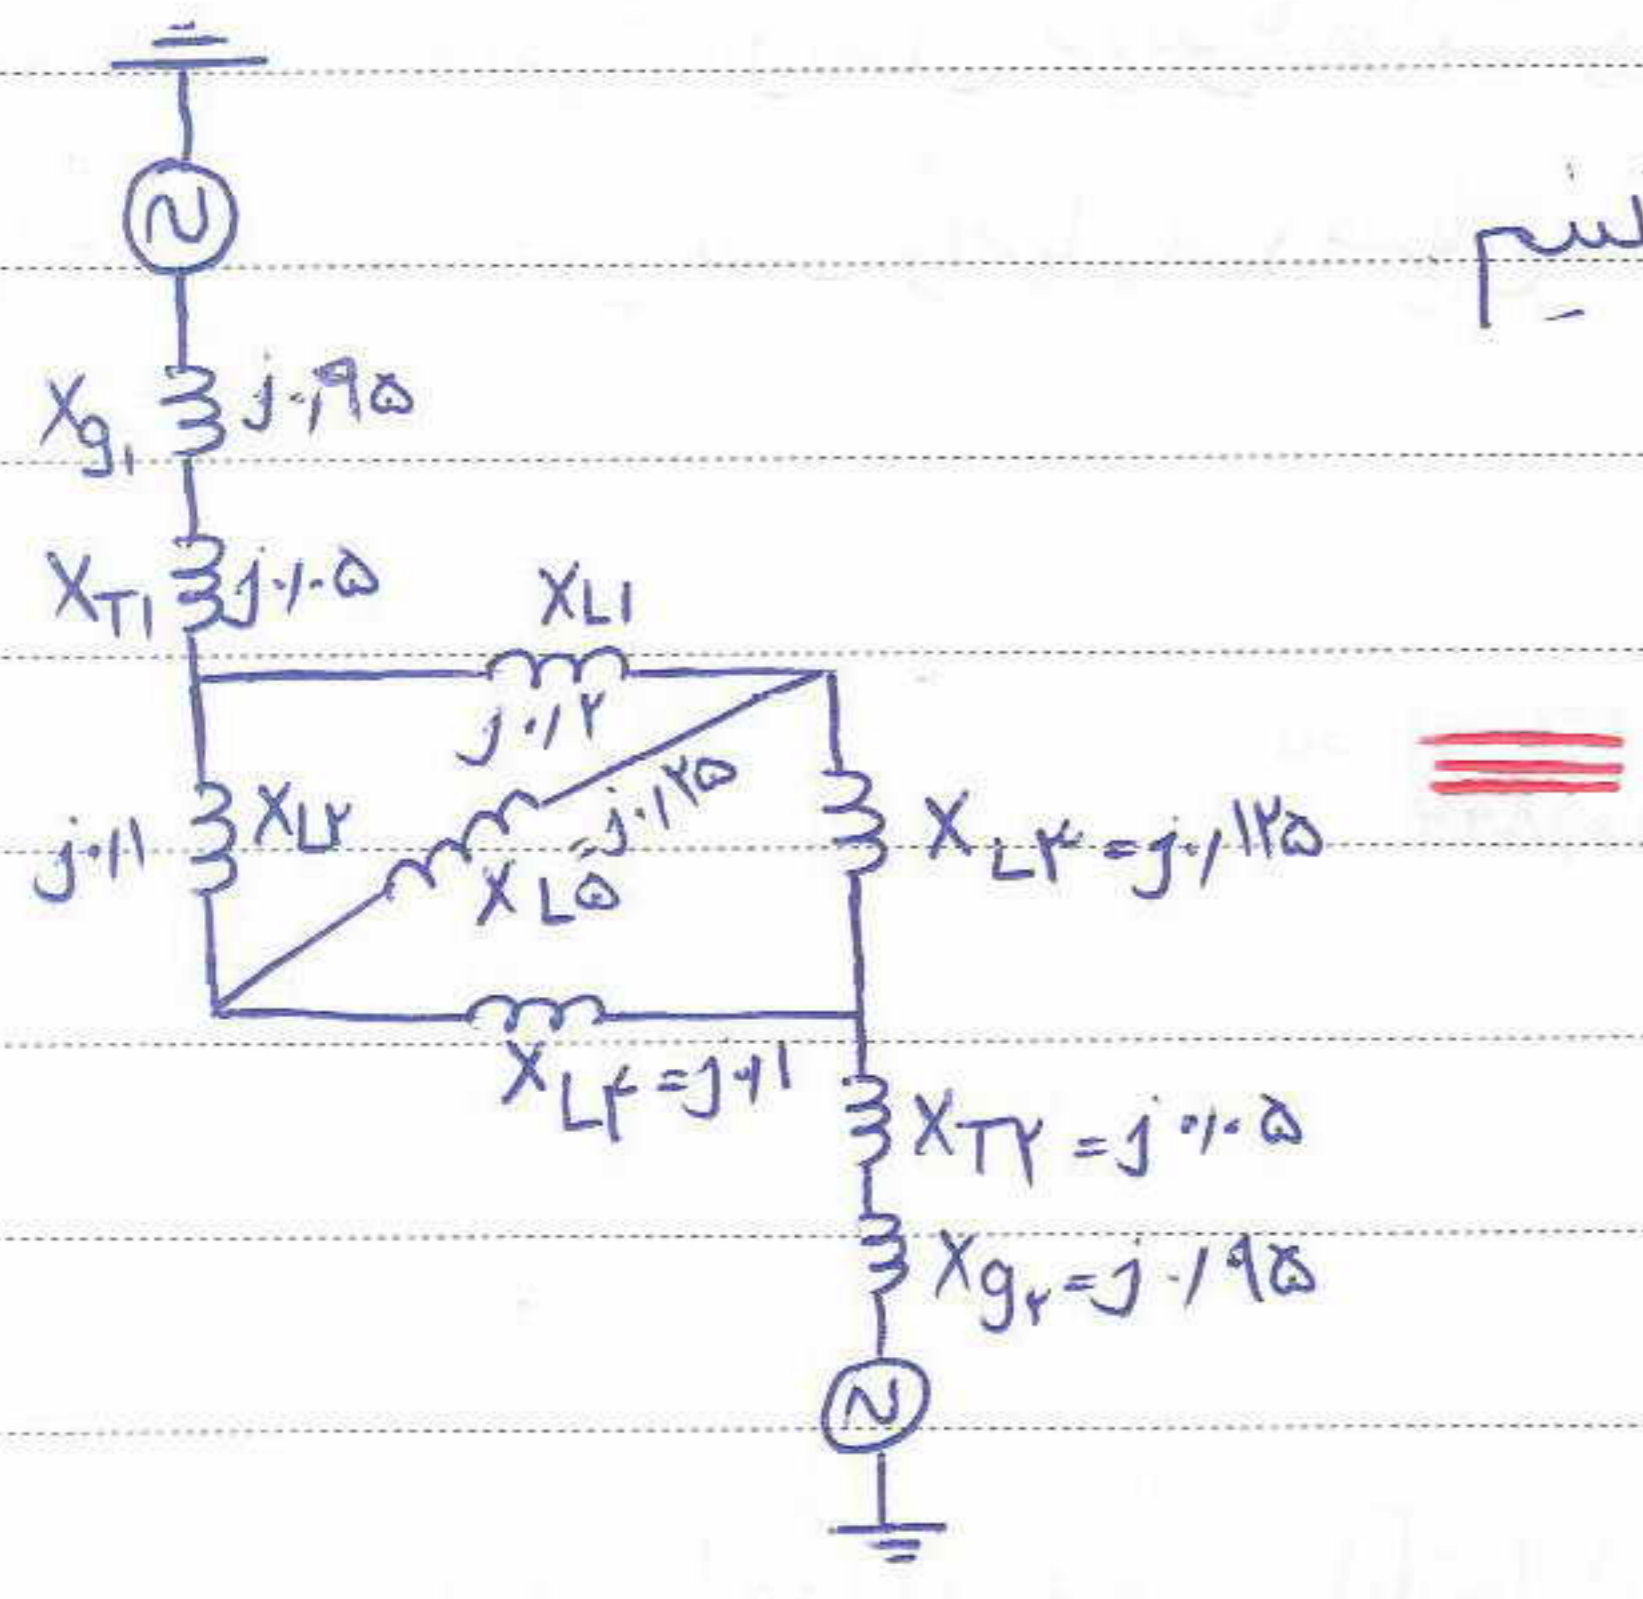 X_g۱ j۰,۹۵
X_T۱ j۰/۰۵
X_L۱
j۰/۲
j۰/۱ X_L۲
X_L۵ = j۰/۲۵
X_L۳ = j۰/۱۲۵
X_L۴ = j۰/۱
X_T۲ = j۰/۰۵
X_g۲ = j۰/۹۵